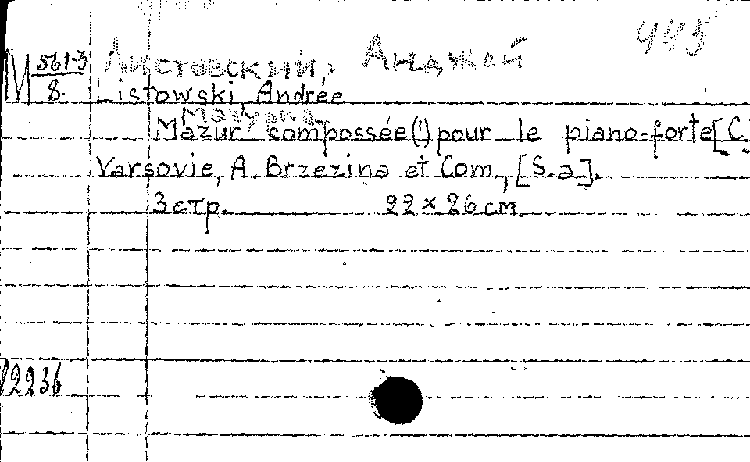 445
М 561-3
8.
Листовский, Анджей
Listowski, Andrée
Mazur compossée(!) pour le piano-forte [C.]
Varsovie, A. Brzezina et Com., [S.a].
3 стр. 22 × 26 см.
12236